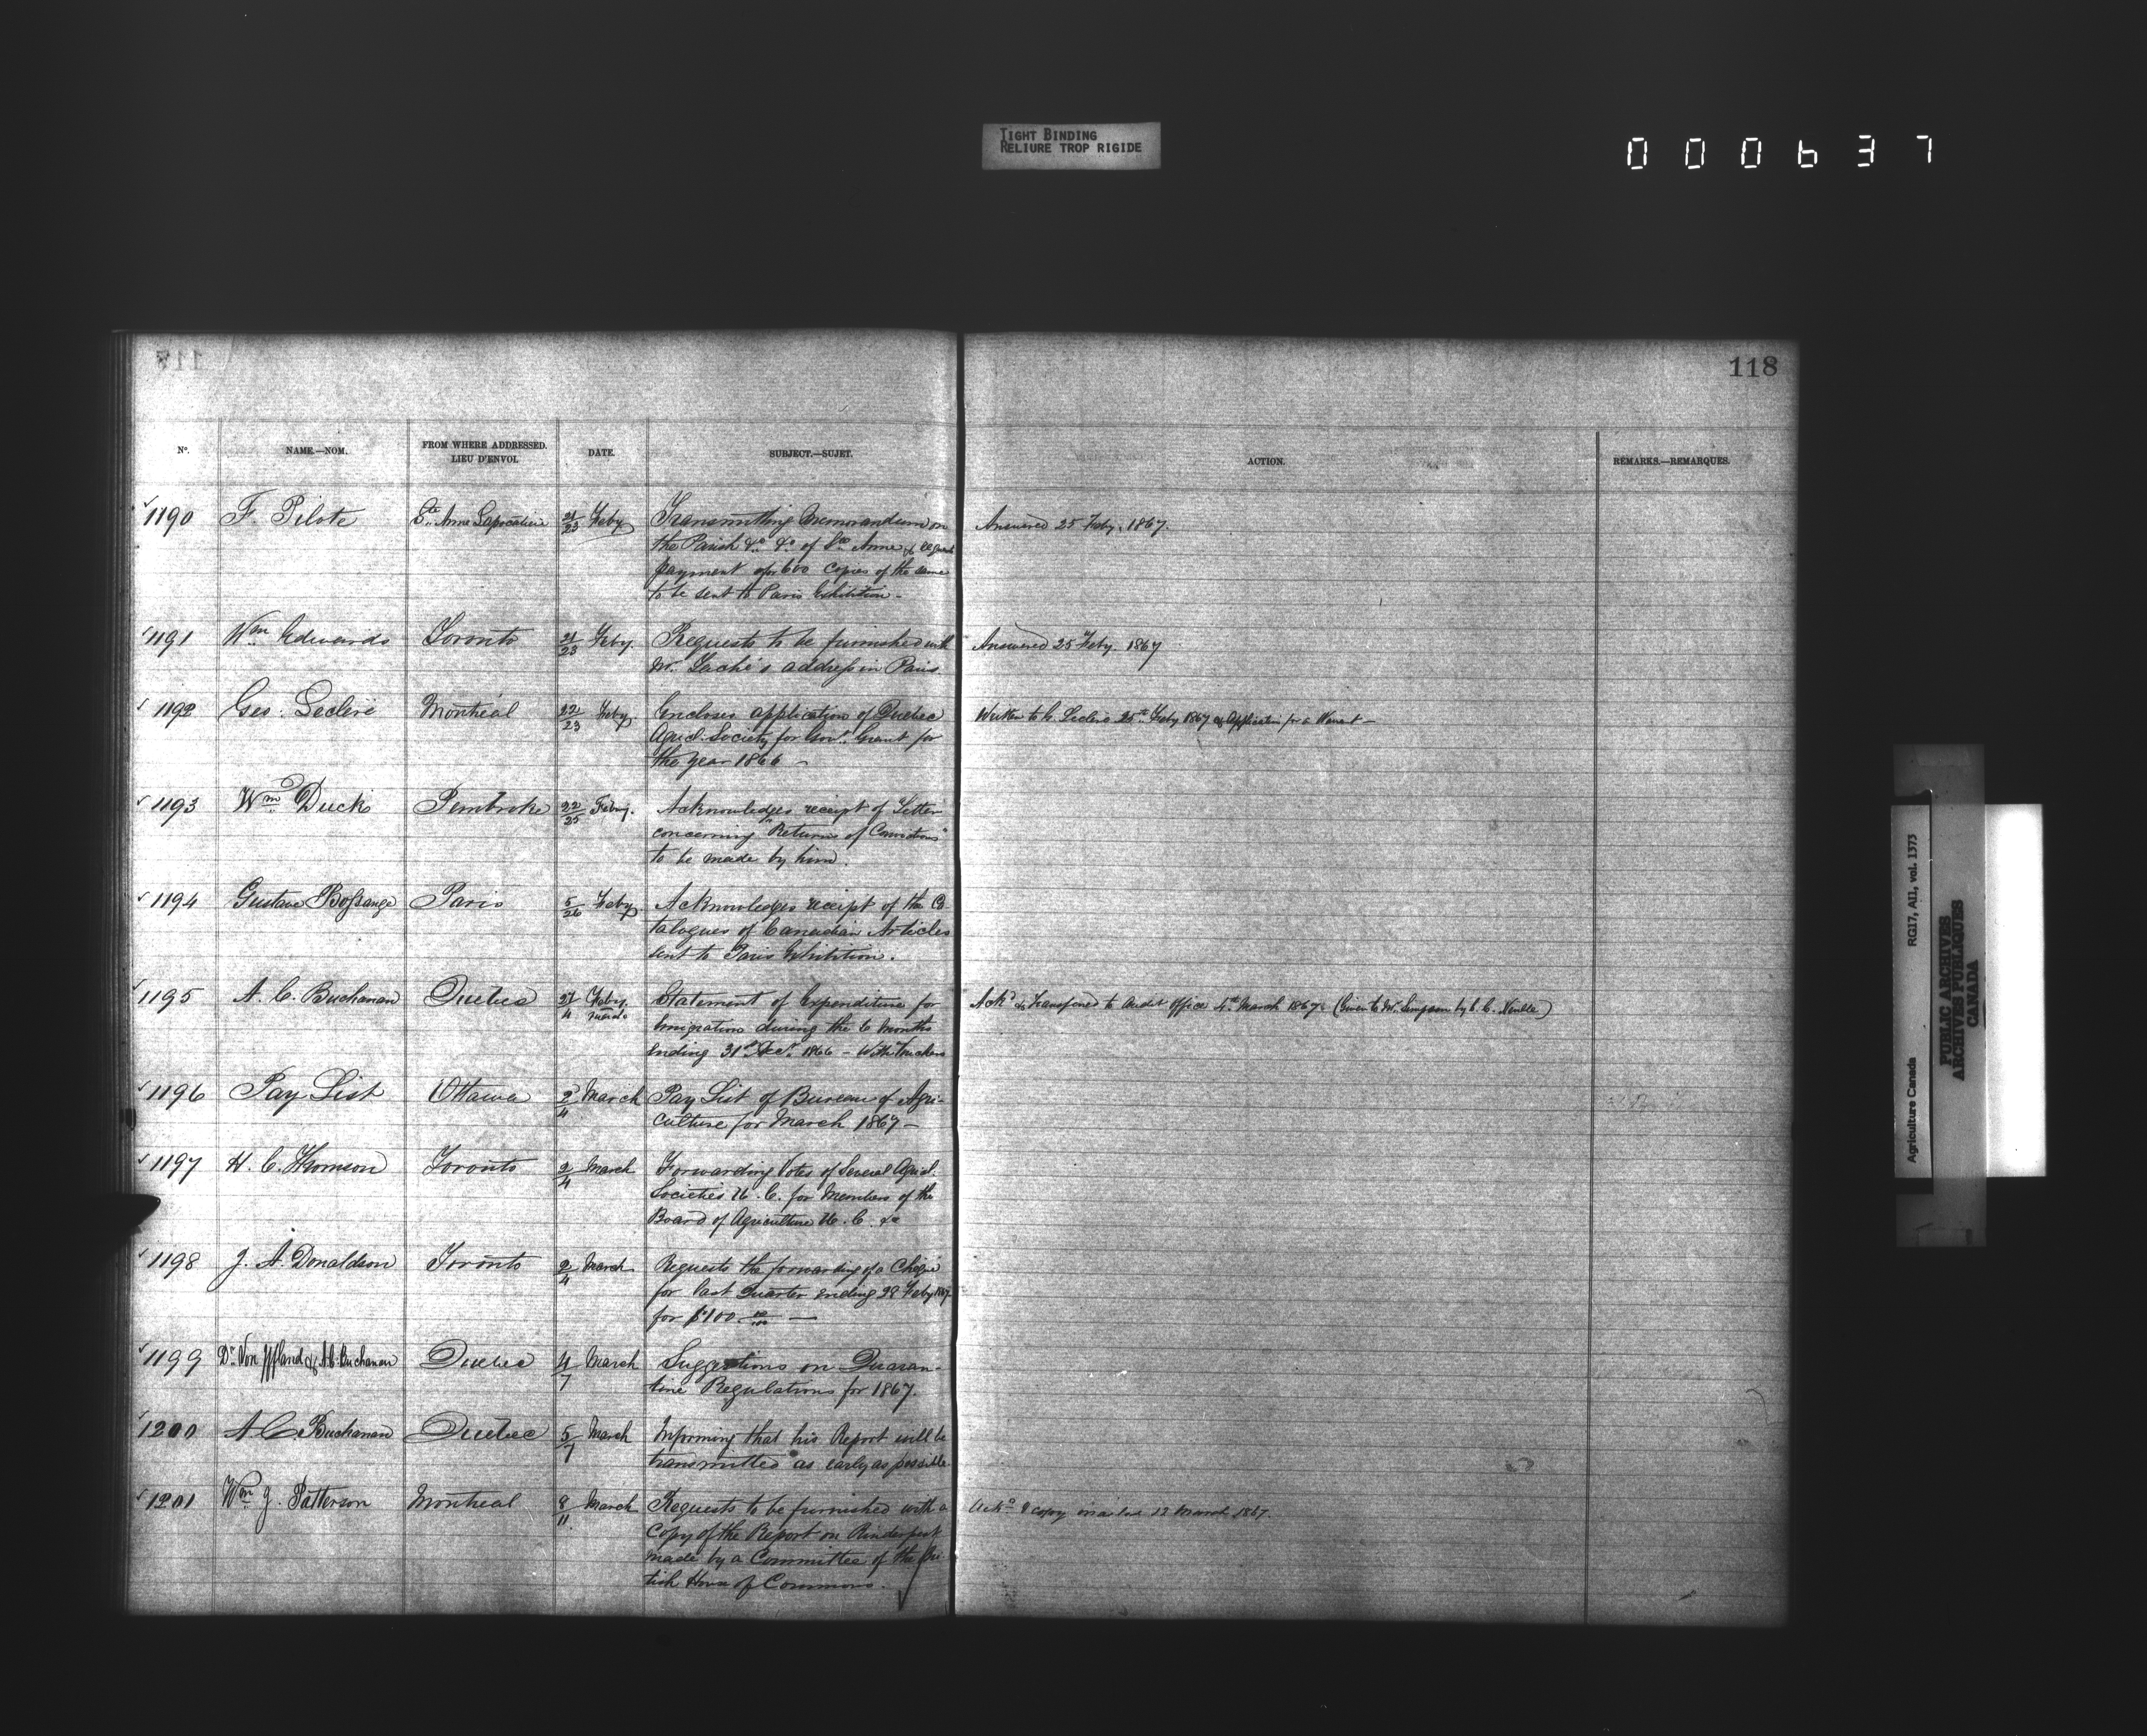 TIGHT BINDING
RELIURE TROP RIGIDE
000637
118
Nº.
NAME.—NOM.
FROM WHERE ADDRESSED.
LIEU D'ENVOI.
DATE.
SUBJECT.—SUJET.
ACTION.
REMARKS.—REMARQUES.
1190 F. Pilote Ste. Anne Lapocatière 21/23 Feby Transmitting Memorandum on Answered 25 Feby. 1867.
the Parish &c. &c. of Ste Anne &
payment for 600 copies of the same
to be sent to Paris Exhibition -
1191 Wm Edwards Toronto 21/23 Feby. Requests to be furnished with Answered 25 Feby. 1867
Mr. Taché's address in Paris.
1192 Geo. Leclère Montreal 22/23 Feby Encloses application of Quebec Written to G. Leclère 25th Feby 1867 & Application for a Warrant -
Agricl. Society for Govt. Grant for
the year 1866 -
1193 Wm Duck Pembroke 22/25 Feby. Acknowledges receipt of Letter
concerning "Returns of Convictions"
to be made by him.
1194 Gustave Bossange Paris 5/26 Feby Acknowledges receipt of the Ca-
talogues of Canadian Articles
sent to Paris Exhibition.
1195 A. C. Buchanan Quebec 27/4 Feby. March Statement of Expenditure for Ackd & transferred to Audit Office 4th March 1867. (Given to Mr. Simpson by)
Emigration during the 6 Months
ending 31st Decr. 1866 - With Vouchers
1196 Pay List Ottawa 2/4 March Pay List of Bureau of Agri-
culture for March 1867 -
1197 H. C. Thomson Toronto 2/4 March Forwarding Votes of Several Agricl.
Societies U. C. for Members of the
Board of Agriculture U. C. &c
1198 J. A. Donaldson Toronto 2/4 March Requests the forwarding of a Cheque
for last Quarter ending 28 Feby 1867
for $100 00/100 —
1199 Dr. Von Iffland & A. C. Buchanan Quebec 4/7 March Suggestions on Quaran-
tine Regulations for 1867.
1200 A. C. Buchanan Quebec 5/7 March Informing that his Report will be
transmitted as early as possible
1201 Wm J. Patterson Montreal 8/11 March Requests to be furnished with a Ackd & copy mailed 12 March 1867.
Copy of the Report on Rinderpest
made by a Committee of the Bri-
tish House of Commons.
Agriculture Canada RG17, AII, vol. 1373
PUBLIC ARCHIVES
ARCHIVES PUBLIQUES
CANADA